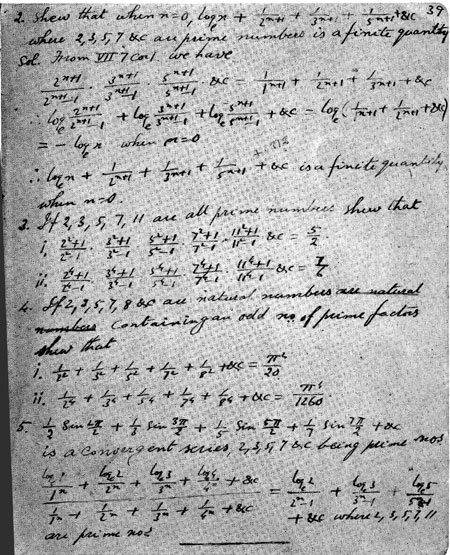 39
2. Shew that when n=0, log n + 1/2^{n+1} + 1/3^{n+1} + 1/5^{n+1} + &c
where 2, 3, 5, 7 &c are prime numbers is a finite quantity
Sol. From VII 7 cor 1. we have
2^{n+1}/(2^{n+1}-1) . 3^{n+1}/(3^{n+1}-1) . 5^{n+1}/(5^{n+1}-1) . &c = 1/1^{n+1} + 1/2^{n+1} + 1/3^{n+1} + &c
∴ log_e 2^{n+1}/(2^{n+1}-1) + log_e 3^{n+1}/(3^{n+1}-1) + log_e 5^{n+1}/(5^{n+1}-1) + &c = log_e (1/1^{n+1} + 1/2^{n+1} + &c)
= - log_e n when n=0
∴ log_e n + 1/2^{n+1} + 1/3^{n+1} + 1/5^{n+1} + &c is a finite quantity
when n=0.
3. If 2, 3, 5, 7, 11 are all prime numbers shew that
i. (2^2+1)/(2^2-1) . (3^2+1)/(3^2-1) . (5^2+1)/(5^2-1) . (7^2+1)/(7^2-1) . (11^2+1)/(11^2-1) &c = 5/2
ii. (2^4+1)/(2^4-1) . (3^4+1)/(3^4-1) . (5^4+1)/(5^4-1) . (7^4+1)/(7^4-1) . (11^4+1)/(11^4-1) &c = 7/6
4. If 2, 3, 5, 7, 8 &c are natural numbers are natural
numbers containing an odd no. of prime factors
shew that
i. 1/2^2 + 1/3^2 + 1/5^2 + 1/7^2 + 1/8^2 + &c = π^2/20
ii. 1/2^4 + 1/3^4 + 1/5^4 + 1/7^4 + 1/8^4 + &c = π^4/1260
5. 1/2 Sin 2π/2 + 1/3 Sin 3π/2 + 1/5 Sin 5π/2 + 1/7 Sin 7π/2 + &c
is a convergent series, 2, 3, 5, 7 &c being prime nos.
(log 1/1^n + log_e 2/2^n + log_e 3/3^n + log_e 4/4^n + &c) / (1/1^n + 1/2^n + 1/3^n + 1/4^n + &c) = log_e 2/(2^n-1) + log_e 3/(3^n-1) + log_e 5/(5^n-1)
+ &c where 2, 3, 5, 7, 11
are prime nos